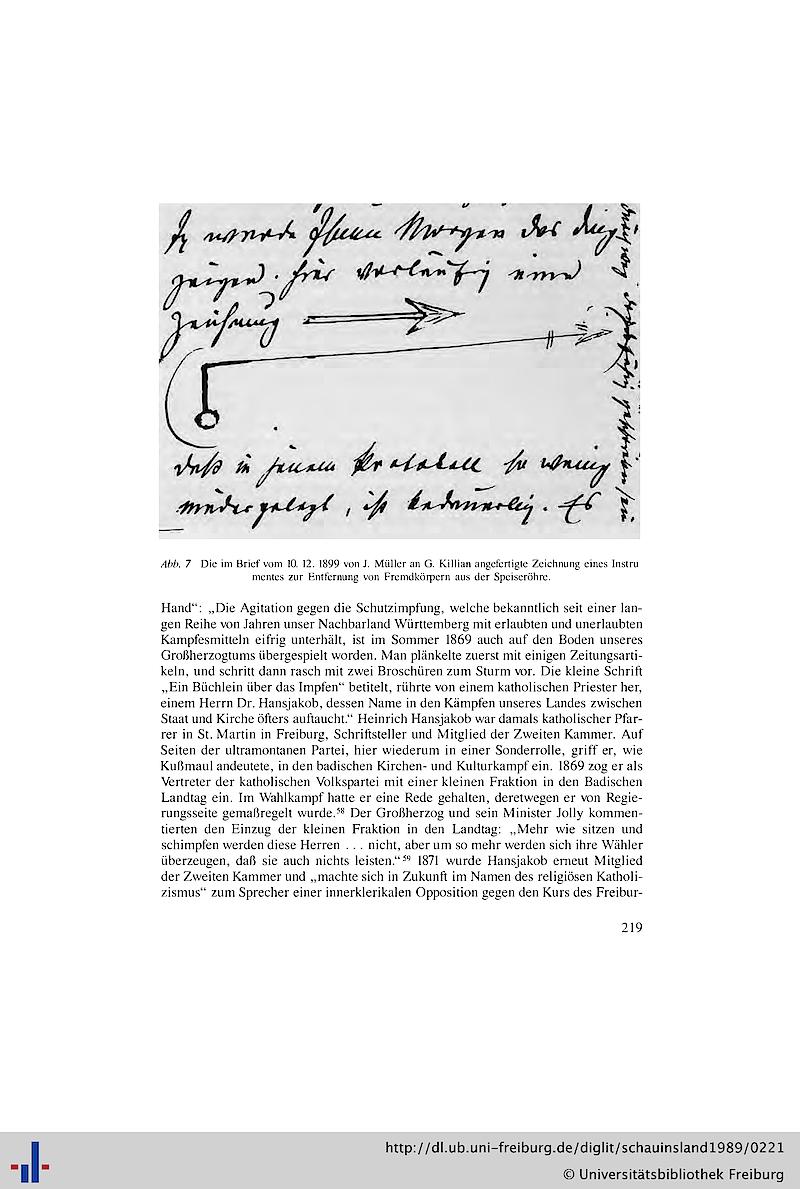 Ich werde Ihnen Morgen das Ding
zeigen. Hier vorläufig eine
Zeichnung
daß in jenem Protokoll so wenig
niedergelegt, ist bedauerlich. Es
Abb. 7 Die im Brief vom 10. 12. 1899 von J. Müller an G. Killian angefertigte Zeichnung eines Instru
mentes zur Entfernung von Fremdkörpern aus der Speiseröhre.
Hand“: „Die Agitation gegen die Schutzimpfung, welche bekanntlich seit einer lan-
gen Reihe von Jahren unser Nachbarland Württemberg mit erlaubten und unerlaubten
Kampfesmitteln eifrig unterhält, ist im Sommer 1869 auch auf den Boden unseres
Großherzogtums übergespielt worden. Man plänkelte zuerst mit einigen Zeitungsarti-
keln, und schritt dann rasch mit zwei Broschüren zum Sturm vor. Die kleine Schrift
„Ein Büchlein über das Impfen“ betitelt, rührte von einem katholischen Priester her,
einem Herrn Dr. Hansjakob, dessen Name in den Kämpfen unseres Landes zwischen
Staat und Kirche öfters auftaucht.“ Heinrich Hansjakob war damals katholischer Pfar-
rer in St. Martin in Freiburg, Schriftsteller und Mitglied der Zweiten Kammer. Auf
Seiten der ultramontanen Partei, hier wiederum in einer Sonderrolle, griff er, wie
Kußmaul andeutete, in den badischen Kirchen- und Kulturkampf ein. 1869 zog er als
Vertreter der katholischen Volkspartei mit einer kleinen Fraktion in den Badischen
Landtag ein. Im Wahlkampf hatte er eine Rede gehalten, deretwegen er von Regie-
rungsseite gemaßregelt wurde.⁵⁸ Der Großherzog und sein Minister Jolly kommen-
tierten den Einzug der kleinen Fraktion in den Landtag: „Mehr wie sitzen und
schimpfen werden diese Herren . . . nicht, aber um so mehr werden sich ihre Wähler
überzeugen, daß sie auch nichts leisten.“⁵⁹ 1871 wurde Hansjakob erneut Mitglied
der Zweiten Kammer und „machte sich in Zukunft im Namen des religiösen Katholi-
zismus“ zum Sprecher einer innerklerikalen Opposition gegen den Kurs des Freibur-
219
http://dl.ub.uni-freiburg.de/diglit/schauinsland1989/0221
© Universitätsbibliothek Freiburg